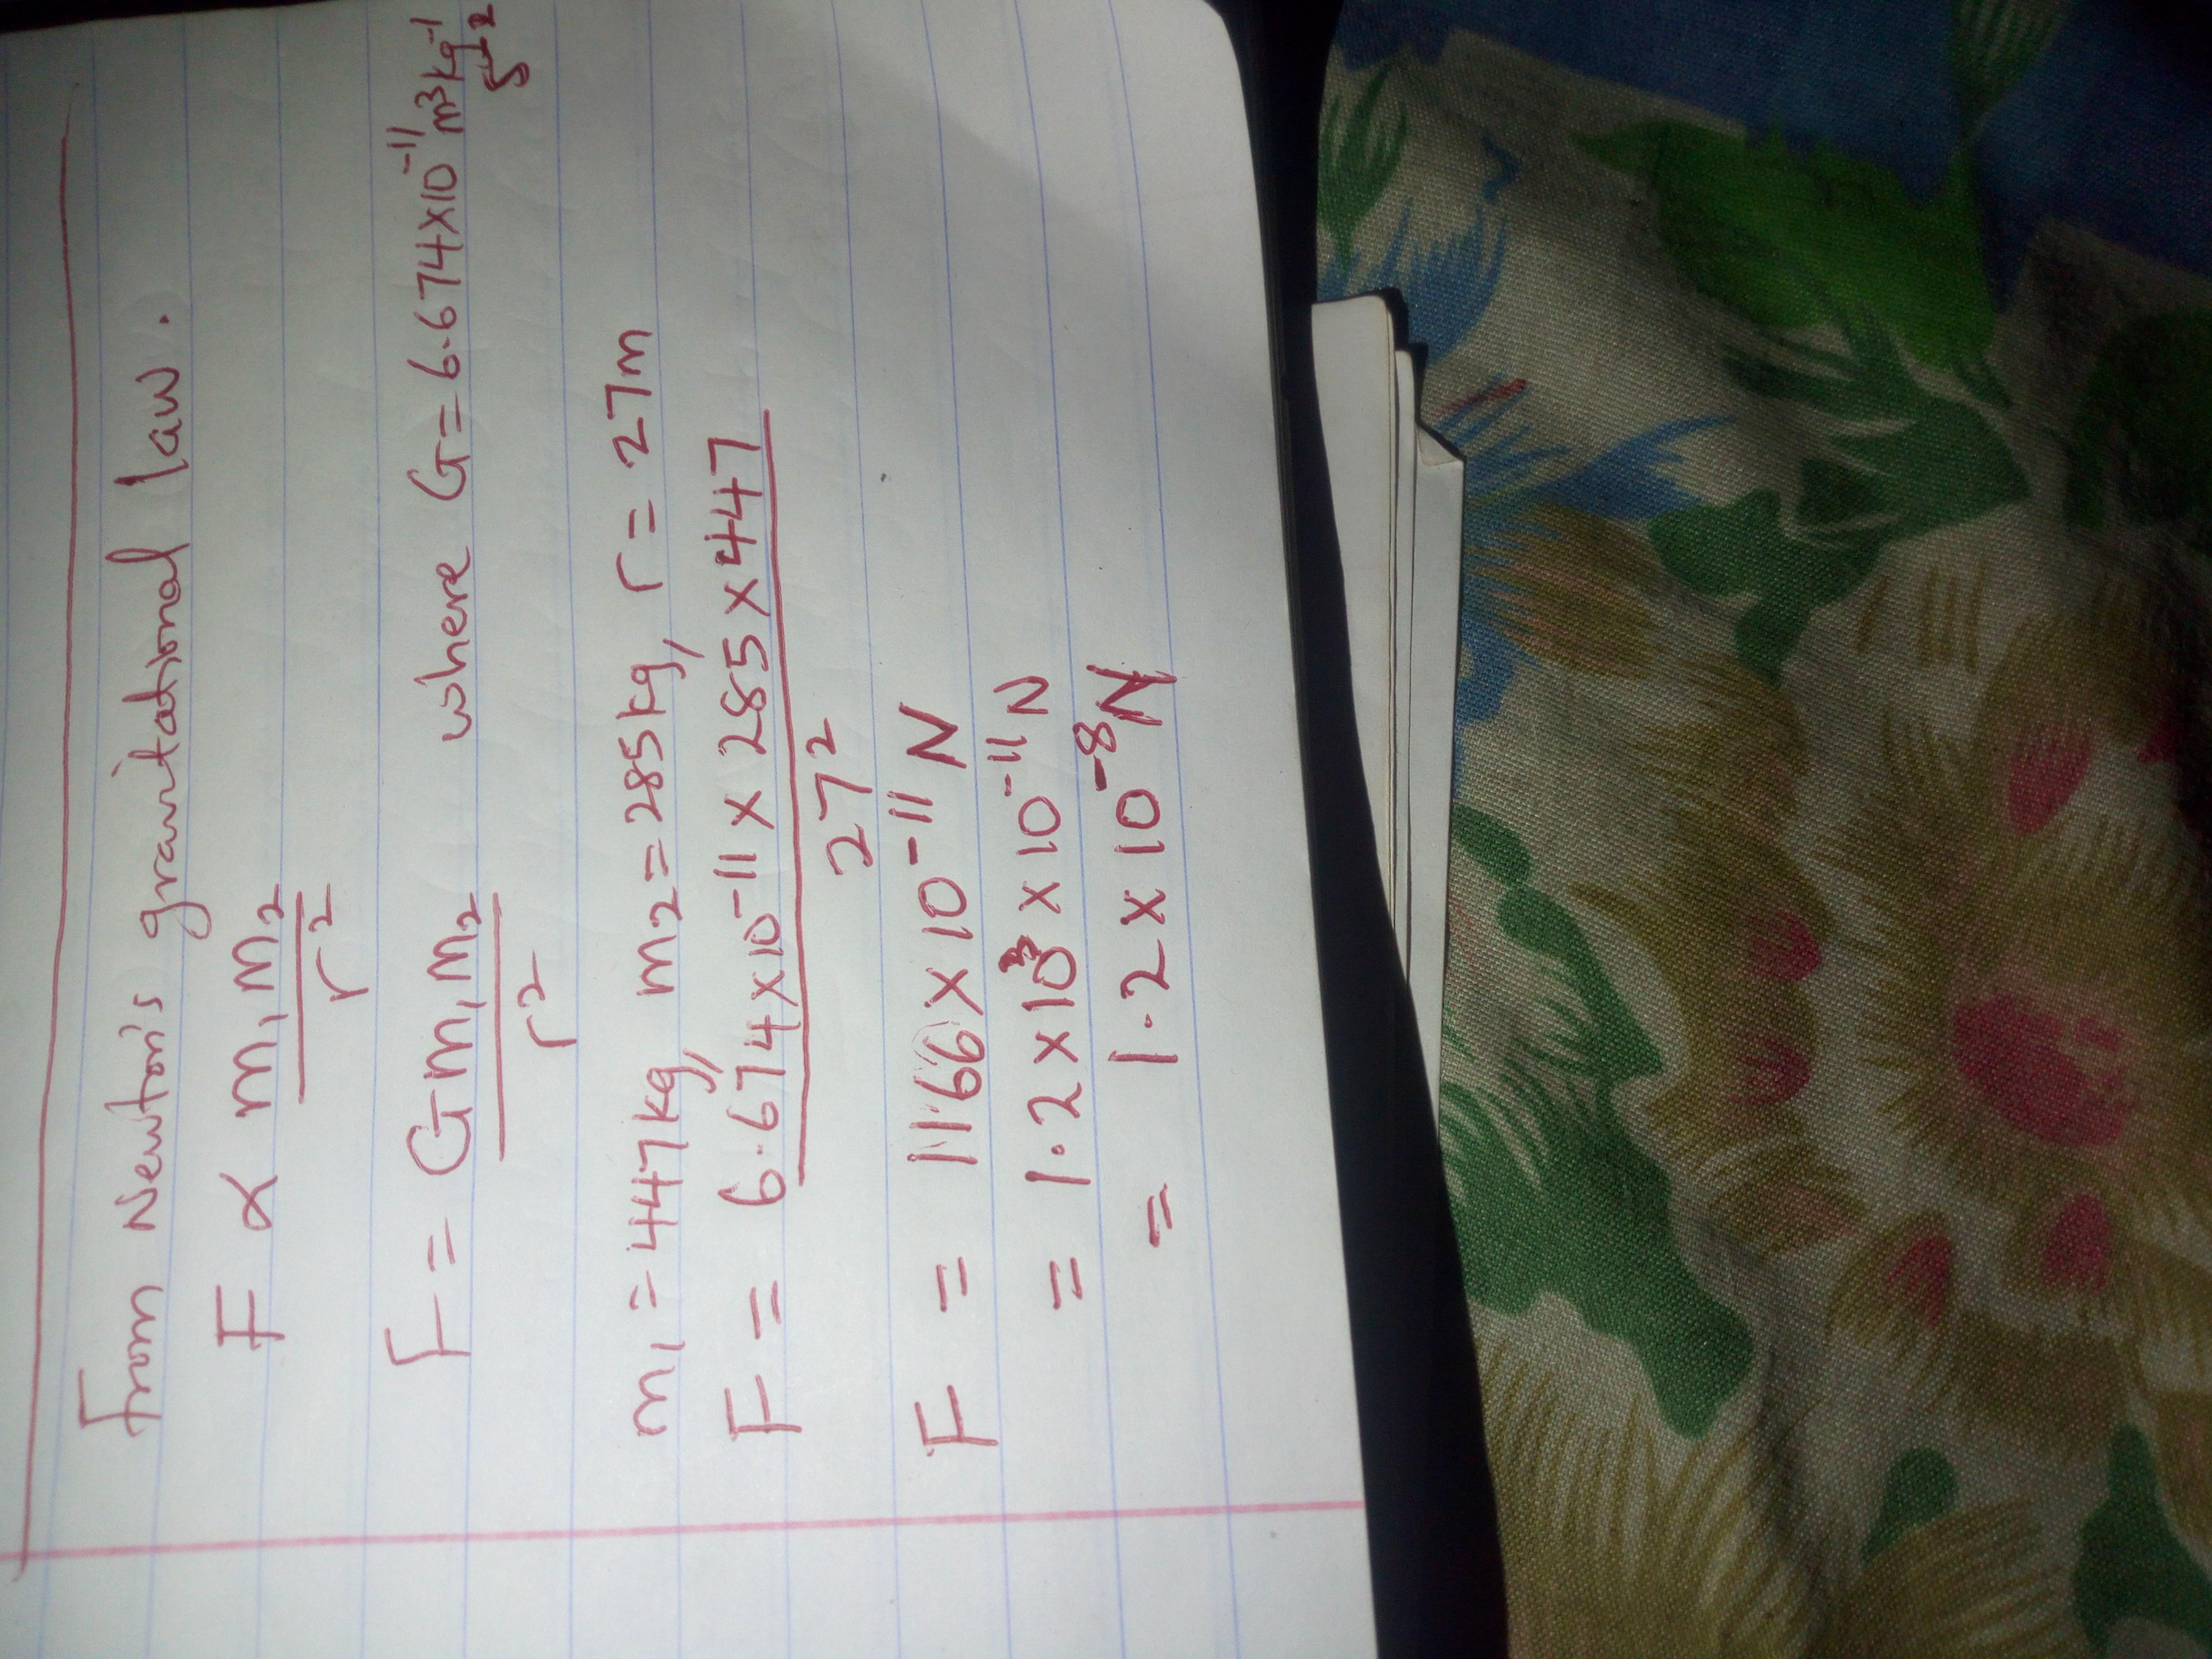 From Newton's gravitational law.
F ∝ m₁m₂
r²
F = Gm₁m₂ where G = 6.674×10⁻¹¹ m³kg⁻¹
s⁻²
r²
m₁ = 447kg, m₂ = 285kg, r = 27m
F = 6.674×10⁻¹¹ × 285 × 447
27²
F = 1166×10⁻¹¹ N
= 1.2 × 10³ × 10⁻¹¹ N
= 1.2 × 10⁻⁸ N